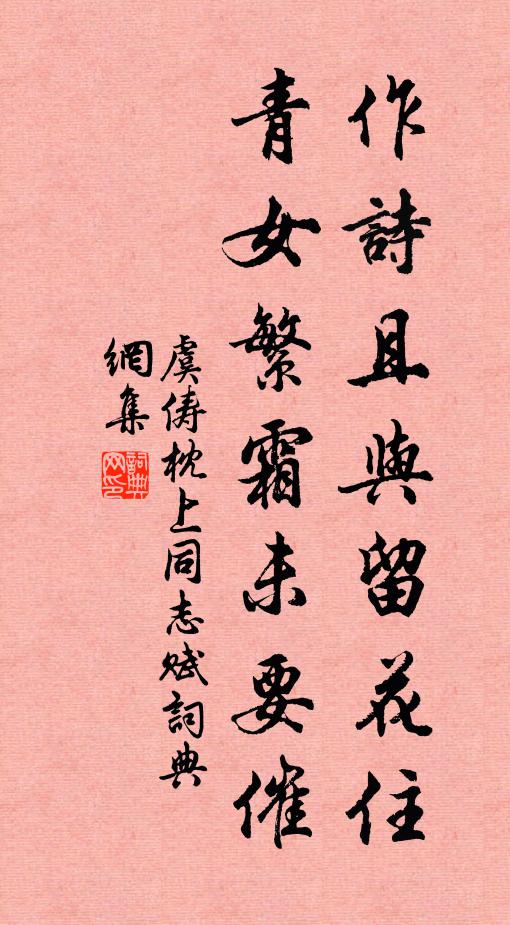 作詩且與留花住
青女繁霜未要催
虞俦枕上同志赋詞典
網集
詞典网印